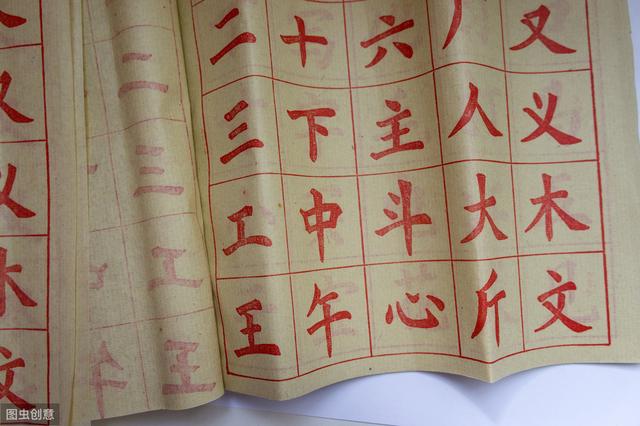 二 十 六 又
三 下 主 人 义
工 中 斗 大 木
王 午 心 斤 文
又
义
木
文
二
三
工
王
午
图虫创意